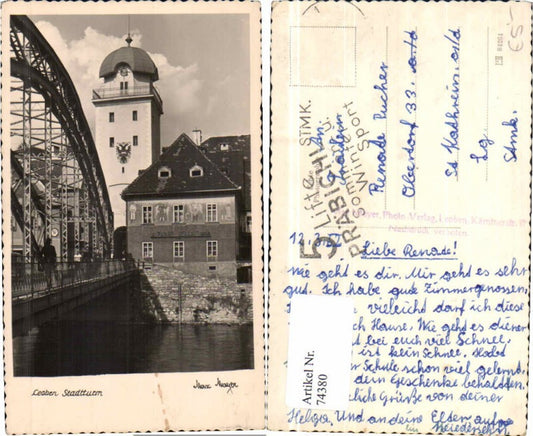 Leoben Stadtturm
STMK.
5 Lifte
PRÄBICHL
Sommer u.
Winter Sport
An
Renade Pucher
Oberdorf 33. ostd
St Kathrein. ostd
Lg
Stmk.
65-
84264
Mayer, Photo-Verlag, Leoben, Kärntnerstr.
Nachdruck verboten
Liebe Renade!
Wie geht es dir. Mir geht es sehr
gut. Ich habe gude Zimmergenossen,
vieleicht darf ich diese
ch Hause. Wie geht es dier
t bei euch viel Schnee,
ist kein Schnee. Habd
r Schule schon viel gelernd.
dein Geschenke behaldden,
liche Grüße von deiner
Helga. Und an deine Eldern auf
Wiedersehn
Artikel Nr.
74380